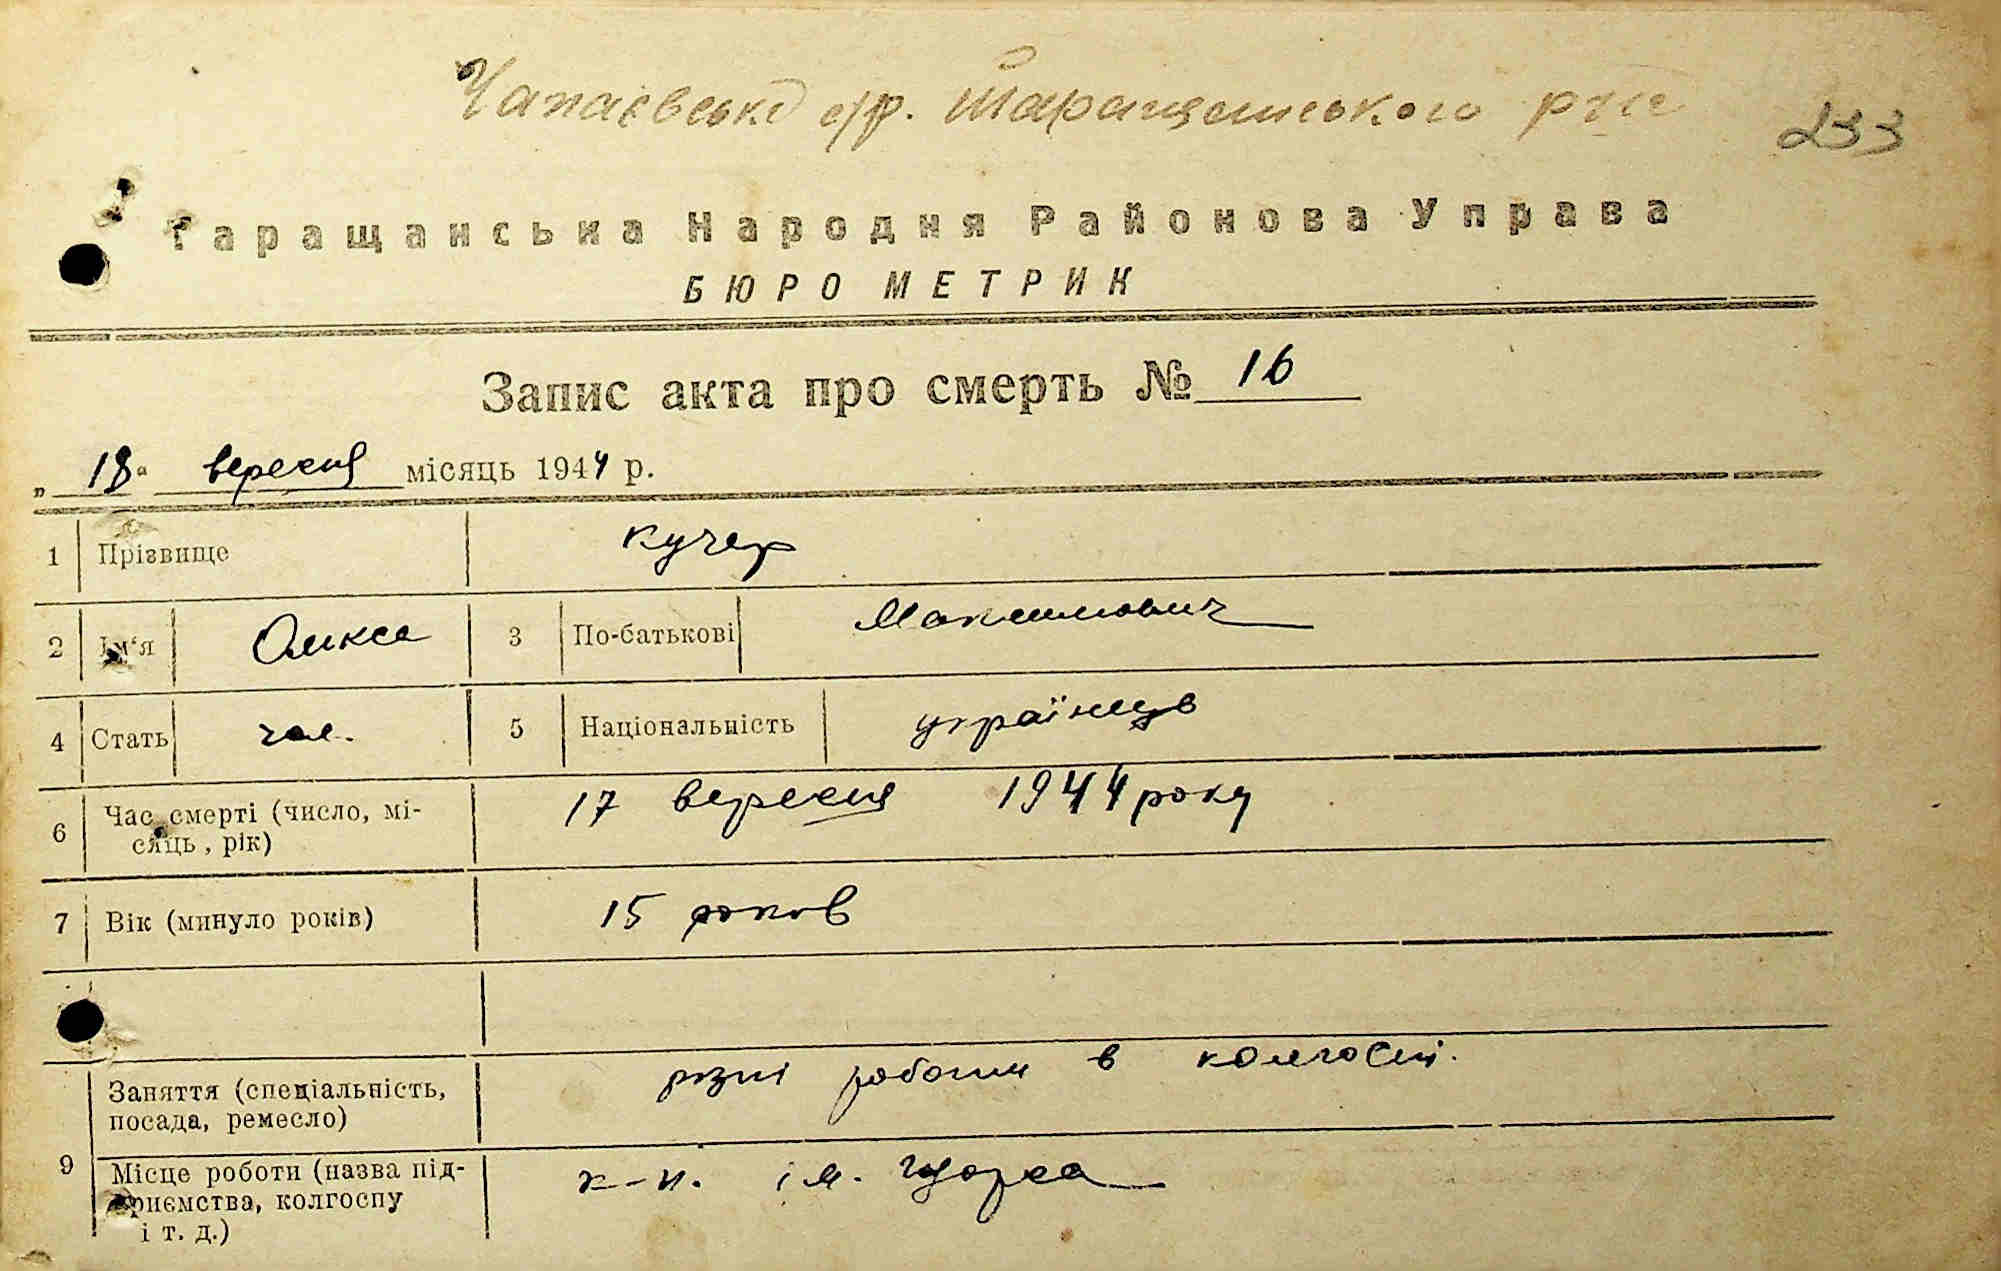 Чапаєвської с/р. Таращанського р-ну
233
Таращанська Народня Районова Управа
БЮРО МЕТРИК
Запис акта про смерть № 16
„ 18 “ вересня місяць 1944 р.
1 Прізвище Кучер
2 Ім‘я Олекса 3 По-батькові Максимович
4 Стать чол. 5 Національність українець
6 Час смерті (число, мі- 17 вересня 1944 року
сяць, рік)
7 Вік (минуло років) 15 років
Заняття (спеціальність, різні роботи в колгоспі.
посада, ремесло)
9 Місце роботи (назва під- к-п. ім. Щорса
приємства, колгоспу
і т. д.)